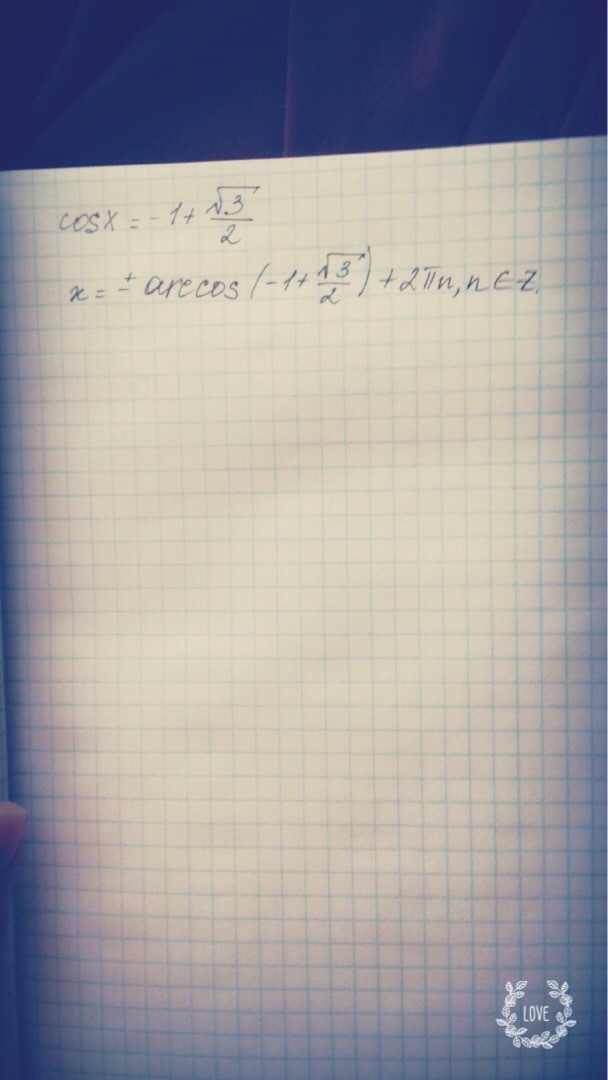 cosx = -1 + √3/2
x = ± arccos (-1 + √3/2) + 2πn, n ∈ Z.
LOVE